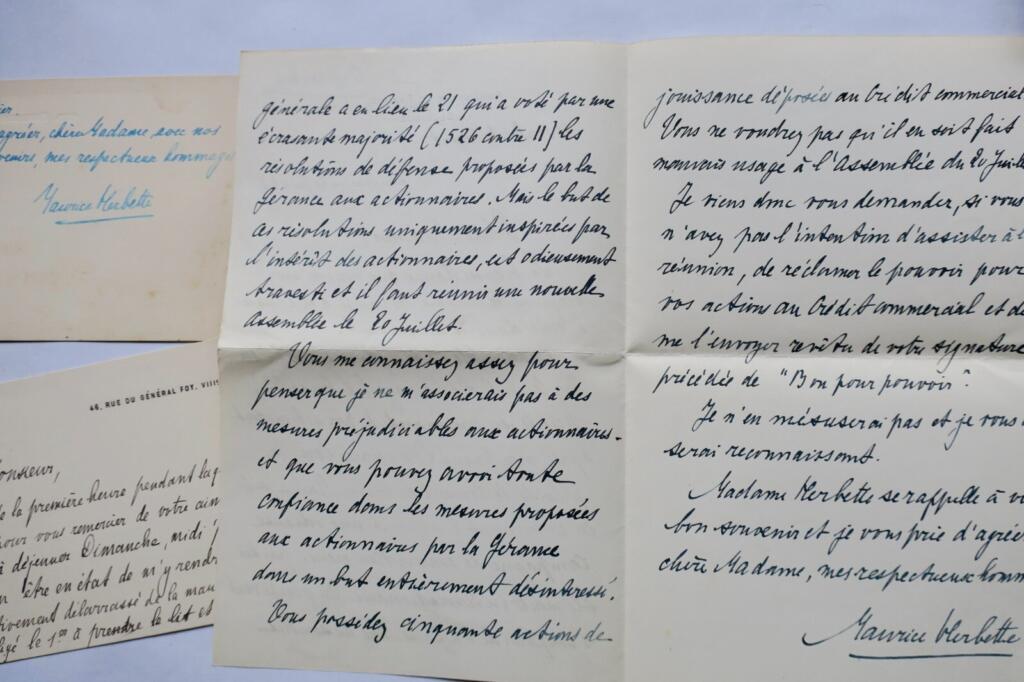 agréer, chère Madame, avec nos
mes respectueux hommages
Maurice Herbette
46, RUE DU GÉNÉRAL FOY. VIII
Monsieur,
la première heure pendant la
pour vous remercier de votre
à déjeuner Dimanche, midi
être en état de m'y rendre
débarrassé de la
le 1er à prendre le lit et
générale a eu lieu le 21 qui a voté par une
écrasante majorité (1526 contre 11) les
résolutions de défense proposées par la
Gérance aux actionnaires. Mais le but de
ces résolutions uniquement inspirées par
l'intérêt des actionnaires, est odieusement
travesti et il faut réunir une nouvelle
Assemblée le 20 Juillet.
Vous me connaissez assez pour
penser que je ne m'associerais pas à des
mesures préjudiciables aux actionnaires -
et que vous pouvez avoir toute
confiance dans les mesures proposées
aux actionnaires par la Gérance
dans un but entièrement désintéressé.
Vous possédez cinquante actions de
jouissance déposées au Crédit commercial
Vous ne voudrez pas qu'il en soit fait
mauvais usage à l'Assemblée du 20 Juillet
Je viens donc vous demander, si vous
n'avez pas l'intention d'assister à
réunion, de réclamer le pouvoir pour
vos actions au Crédit commercial et de
me l'envoyer revêtu de votre signature
précédée de "Bon pour pouvoir".
Je n'en mésuserai pas et je vous
serai reconnaissant.
Madame Herbette se rappelle à
bon souvenir et je vous prie d'agréer
chère Madame, mes respectueux
Maurice Herbette